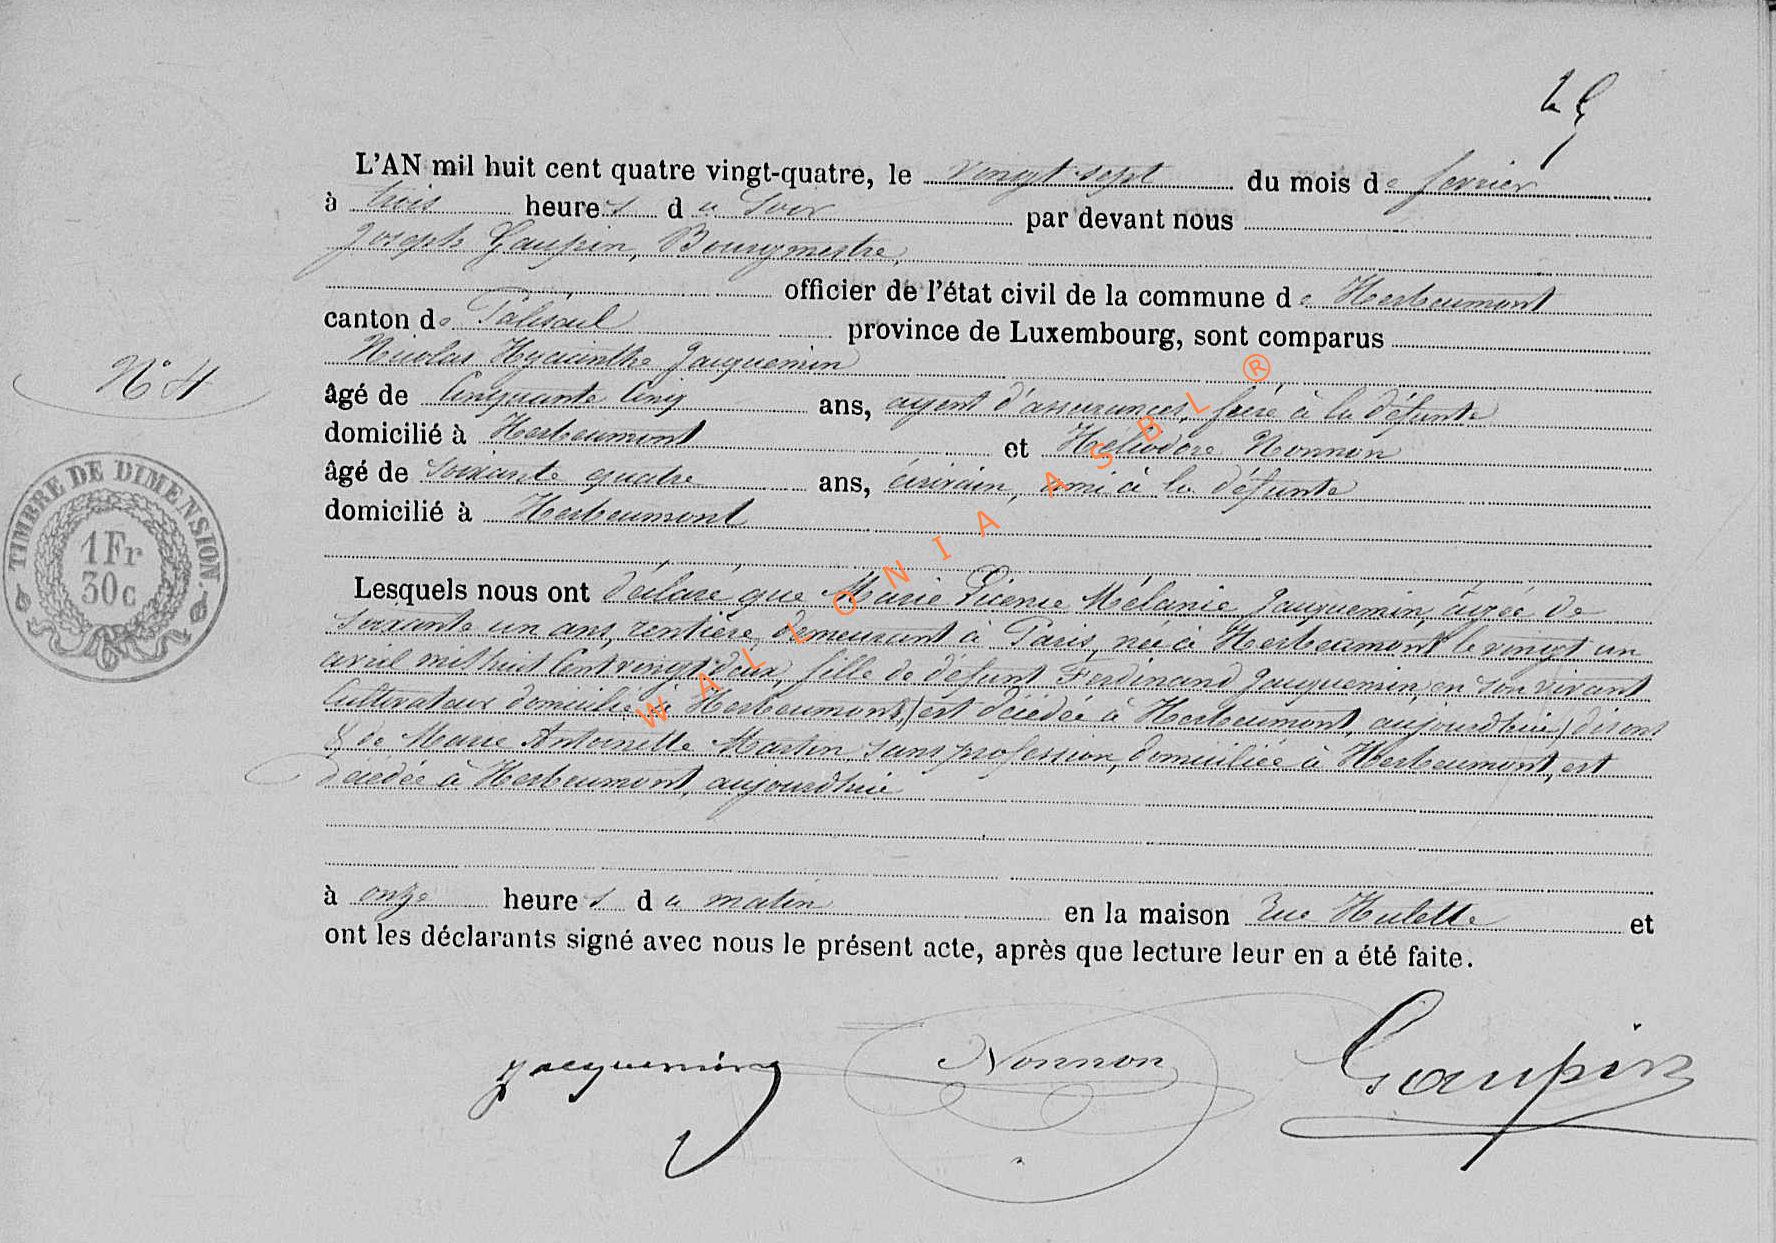 25
L'AN mil huit cent quatre vingt-quatre, le vingt sept du mois de fevrier
à trois heures du soir par devant nous
Joseph Gaupin, Bourgmestre,
officier de l'état civil de la commune de Herbeumont
canton de Paliseul province de Luxembourg, sont comparus
Nicolas Hyacinthe Jacquemin
N° 4
âgé de Cinquante Cinq ans, agent d'assurances, frère à la défunte
domicilié à Herbeumont et Héliodore Nonnon
âgé de soixante quatre ans, écrivain, ami à la défunte
domicilié à Herbeumont
TIMBRE DE DIMENSION
1 Fr
30c
Lesquels nous ont déclaré que Marie Mélanie Jacquemin, âgée de
soixante un ans, rentière, demeurant à Paris, née à Herbeumont le vingt un
avril mil huit Cent vingt deux, fille de défunt Ferdinand Jacquemin, en son vivant
Cultivateur domicilié à Herbeumont,) est décédée à Herbeumont, aujourdhui) disons
& de Marie Antoinette Martin sans profession, domiciliée à Herbeumont, est
décédée à Herbeumont, aujourdhui
à onze heures du matin en la maison Rue Hulette et
ont les déclarants signé avec nous le présent acte, après que lecture leur en a été faite.
Jacquemin Nonnon Gaupin
WALLONIA ASBL ®